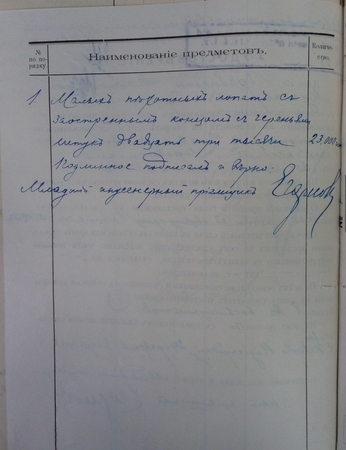 №
по по-
рядку.
Наименованіе предметовъ.
Количе-
ство.
1 Малыхъ пѣхотныхъ лопатъ съ
заостреннымъ концомъ съ череньями
штукъ двадцать три тысячи 23.000
Подлинное подписалъ и вѣрно:
Младшій инженерный пріемщикъ